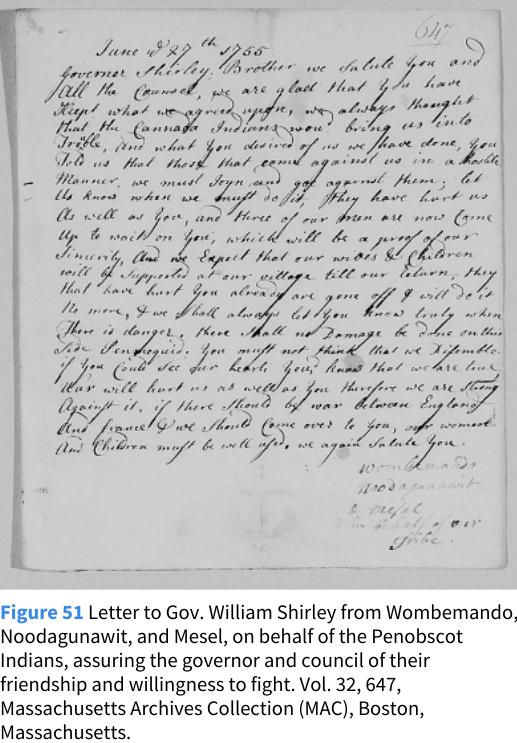 647
June ye 27th 1755
Governor Shirley, Brother we Salute You and
All the Counsel, we are glad that You have
Kept what we agreed upon, we always thought
that the Cannada Indians wou'd bring us into
Trible, And what You desired of us we have done, You
Told us that those that come against us in a Hosble
Manner, we must Joyn and goe against them; let
Us know when we must do it, they have hurt us
As well as You, and three of our men are now Come
Up to wait on You, which will be a proof of our
Sincerity, And we Expect that our wives & Children
will be Supported at our village till our return, they
that have hurt You already are gone off & will do it
No more, & we shall always let You know truly when
There is danger, there Shall no Damage be done on this
Side You must not think that we Disemble
if You Could See our hearts You'd know that we are true
War will hurt us as well as You therefore we are Strong
Against it, if there Should be war between England
And france & we Should Come over to You, our women
And Children must be well used, we again Salute You.
Wombemando
Noodagunawit
& Mesel
in behalf of our
Tribe.
Figure 51 Letter to Gov. William Shirley from Wombemando,
Noodagunawit, and Mesel, on behalf of the Penobscot
Indians, assuring the governor and council of their
friendship and willingness to fight. Vol. 32, 647,
Massachusetts Archives Collection (MAC), Boston,
Massachusetts.